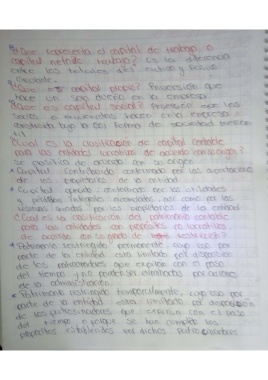 ¿Que representa el capital de trabajo o
capital neto de trabajo? Es la diferencia
entre los activos y pasivo
circulante.
¿Que es capital propio? Proveccion que
hace un solo dueño en la empresa
¿Que es capital social? Proveccion que los
socios o accionistas hacen a una empresa
constituida bajo la forma de sociedad mercan
til
¿Cual es la clasificación de capital contable
para las entidades lucrativas de acuerdo con su origen?
Se clasifica de acuerdo con su origen
* Capital Contribuido conformado por las aportaciones
de los propietarios de la entidad
* Capital ganado conformado por las utilidades
y pérdidas integrales acumuladas, así como por las
reservas creadas por los propietarios de la entidad
¿Cual es la clasificación del patrimonio contable
para las entidades con propositos no lucrativos
de acuerdo con su grado de restricción?
* Patrimonio restringido permanente, cuyo uso por
parte de la entidad esta limitado por disposicion
de los patrocinadores que expiran con el paso
del tiempo y no pueden ser eliminadas por acciones
de la administración.
* Patrimonio restringido temporalmente, cuyo uso por
parte de la entidad esta limitado por disposicion
de los patrocinadores que expiran con el paso
del tiempo o porque se han cumplido los
propositos establecidos por dichos patrocinadores